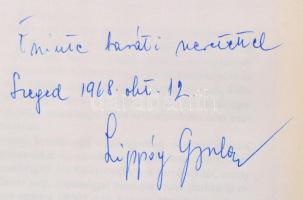 Őszinte baráti szeretettel
Szeged 1968. okt. 12.
Lippóy Gyula